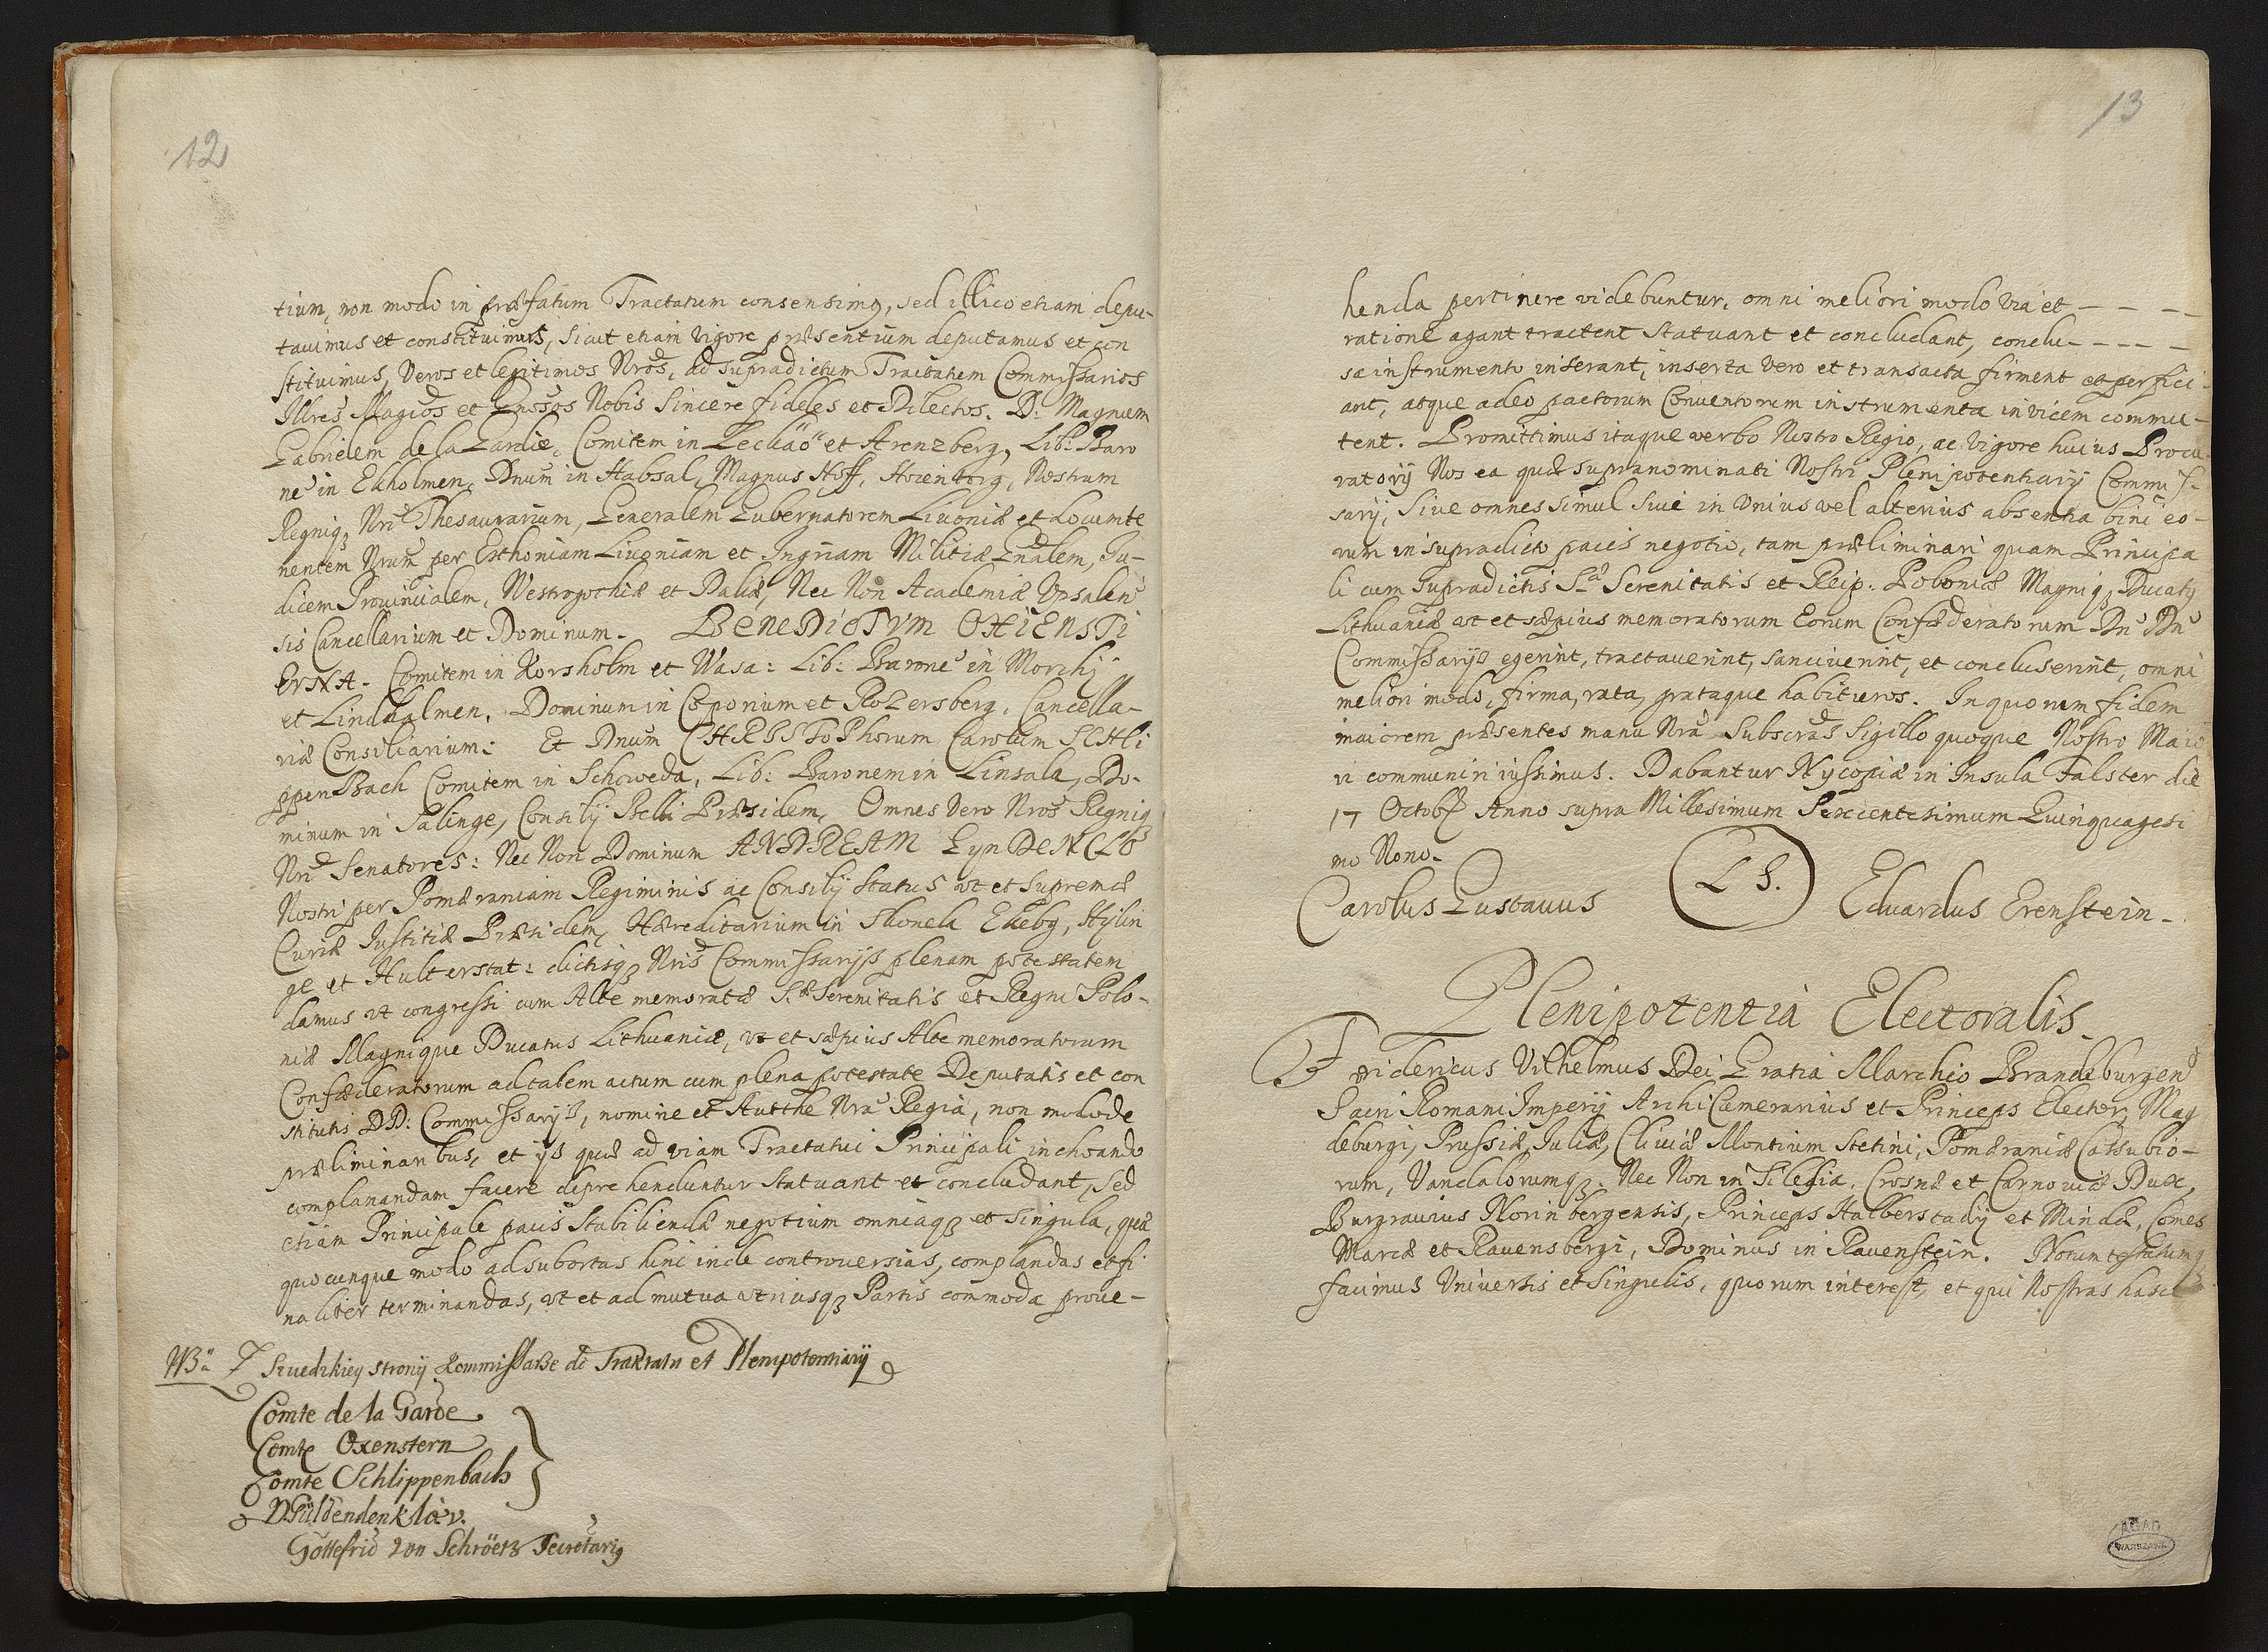 12
tium, non modo in præfatum Tractatum consensimq, sed illico etiam depu-
tauimus et constituimus, sicut etiam vigore præsentium deputamus et con
stituimus, Veros et legitimos Nros, ad supradictum Tractatum Commissarios
Illres Magcos et Gnosos Nobis sincere fideles et Dilectos. D: Magnum
Gabrielem de la Gardie, Comitem in Leckäö et Arenzberg, Lib: Baro
ne in Ekholmen, Dnum in Habsal, Magnus Hoff, Hoientorg, Nostrum
Regniq Nri Thesaurarium, Generalem Gubernatorem Liuoniæ et Locumte
nentem Nrum per Esthoniam Liuoniam et Ingriam Militiæ Gnalem, Ju-
dicem Prouincialem, Westrogothiæ et Daliæ, Nec Non Academiæ Vpsalen
sis Cancellarium et Dominum. BENEDICTVM OXIENSTI
ERNA. Comitem in Korsholm et Wasa: Lib: Barone in Morchij
et Lindhalmen, Dominum in Caponium et Rozersberg, Cancella-
riæ Consiliarium: Et Dnum CHRISTOPhorum Carolum SCHli
ppenBach Comitem in Schoweda, Lib: Baronem in Linsala, Do-
minum in Salinge, Consilij Belli Præsidem, Omnes Vero Nros Regniq
Nri Senatores: Nec Non Dominum ANDREAM GynDENCLO
Nostri per Pomeraniam Regiminis ac Consilij Status vt et Supremæ
Curiæ Justitiæ Præsidem, Hæreditarium in Skonela Ekeby, Hylin
ge et Hulterstat: dictisq Nris Commissarijs plenam potestatem
damus vt congressi cum Alte memoratæ S: Serenitatis et Regni Polo-
niæ Magnique Ducatus Lithuaniæ, vt et sæpius Alte memoratorum
Confæderatorum ad talem actum cum plena potestate Deputatis et con
stitutis DD: Commissarijs, nomine et Autthe Nra Regia, non modo de
præliminaribus, et ijs quæ ad viam Tractatui Principali inchoando
complanandam facere deprehenduntur statuant et concludant, sed
etiam Principale pacis Stabiliendæ negotium omniaq et singula, quæ
quocunque modo ad subortas hinc inde controuersias, complandas et fi
naliter terminandas, vt et ad mutua vtriusq Partis commoda proue-
NB: Z Szwedzkiey strony Kommissarze do Traktatu et Plenipotentiarij
Comte de la Garde
Comte Oxenstern
Comte Schlippenbach
D Güldendenklåv.
Gottefrid von Schröetz Secretariq
13
henda pertinere videbuntur, omni meliori modo via et - - - -
ratione agant tractent statuant et concludant, conclu- - - - -
sa instrumento inserant, inserta vero et transacta firment et perfici-
ant, atque adeo pactorum Conuentorum instrumenta invicem commu-
tent. Promittimus itaque verbo Nostro Regio, ac vigore huius Procu-
ratorij Nos ea quæ supranominati Nostri Plenipotentiarij Commis-
sarij, siue omnes simul siue in Vnius vel alterius absentia bini eo-
rum in supradicto pacis negotio, tam præliminari quam Principa
li cum supradictis Sæ Serenitatis et Reip: Poloniæ Magniq Ducatq
Lithuaniæ vt et sæpius memoratorum Eorum Confæderatorum Dn Dn
Commissarijs egerint, tractauerint, sanciuerint, et concluserint, omni
meliori modo, firma, rata, grataque habituros. In quorum fidem
maiorem præsentes manu Nra Subscras Sigillo quoque Nostro Maio
ri communiri iussimus. Dabantur Nycopiæ in Insula Falster die
17 Octobr Anno supra Millesimum Sexcentesimum Quinquagesi
mo Nono.
Carolus Gustauus L S. Eduardus Erenstein.
Plenipotentia Electoralis
Fridericus Vilhelmus Dei Gratia Marchio Brandeburgen
Sacri Romani Imperij Archi Camerarius et Princeps Elector, Mag
deburgi, Prussiæ, Juliæ, Cliuiæ Montium Stetini, Pomeraniæ Cassubio-
rum, Vandalorumq. Nec Non in Silesia, Crosnæ et Carnouiæ Dux,
Burgrauius Norinbergensis, Princeps Halberstadij et Mindæ, Comes
Marcæ et Rauensbergi, Dominus in Rauenstein. Notum testatumq
facimus Vniuersis et singulis, quorum interest, et qui Nostras hasce
AGAD
WARSZAWA